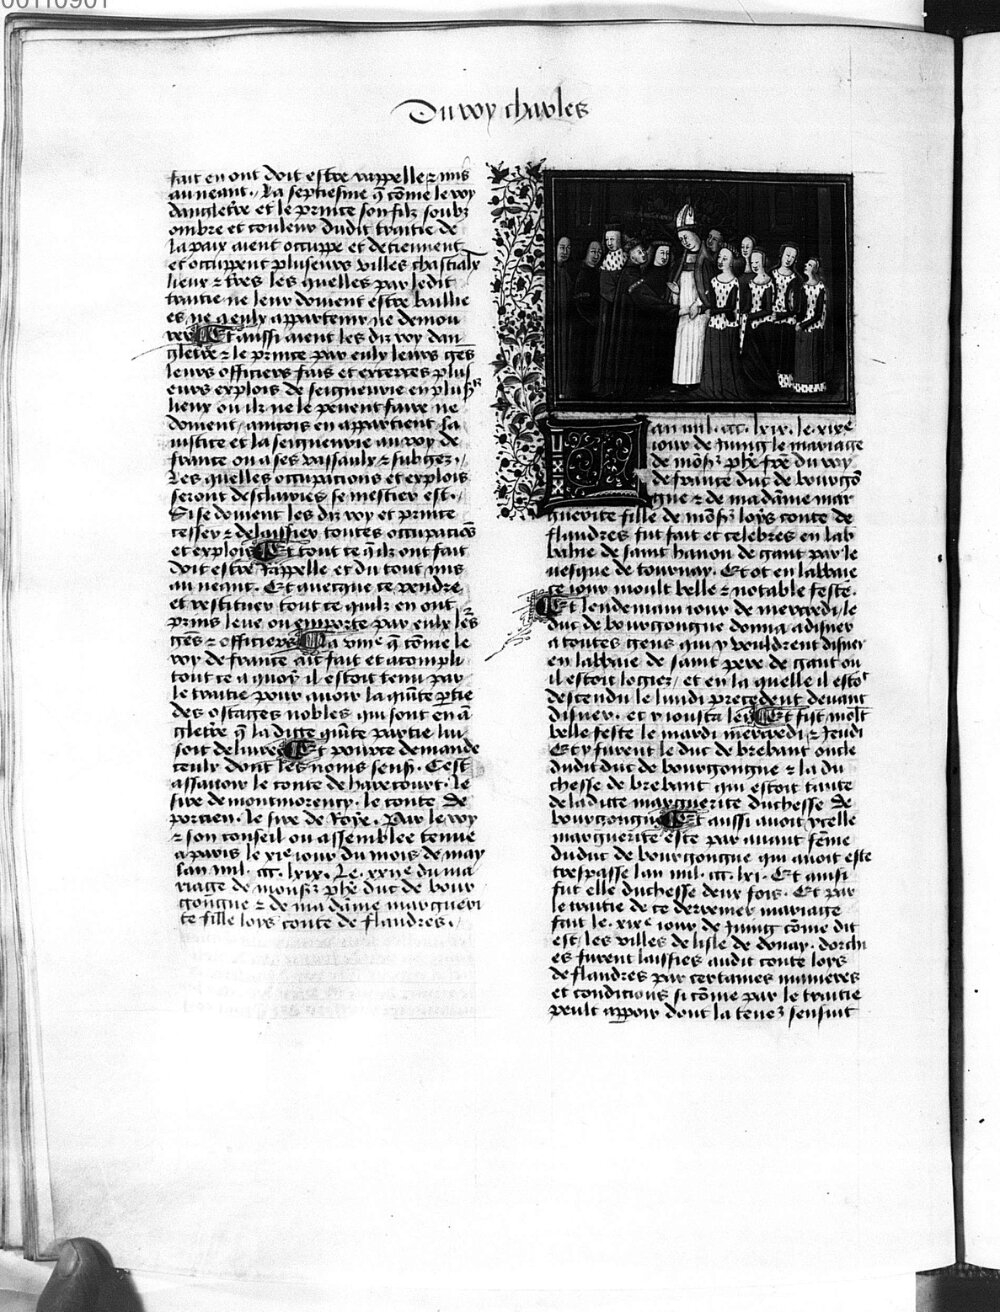 Du roy charles
fait en ont doit estre rappelle ⁊ mis
au neant. La septiesme q̄ cōme le roy
dangletre et le prince son filz soubz
ombre et couleur dudit traitie de
la paix aient occuppe et detiennent
et occuppent plusieurs villes chasteaulx
lieux ⁊ tres les quelles par ledit
traitie ne leur doivent estre baillie
es ne a eulx appartenir ne demou
rer Et aussi aient les diz roy dan
gletre ⁊ le prince par eulx leurs gēs
leurs officiers fais et excerces plus
eurs explois de seigneurie en plusrs
lieux ou ilz ne le peuent faire ne
doivent / aincois en appartient la
iustice et la seigneurie au roy de
france ou a ses vassaulx ⁊ subgez.
Les quelles occupacions et explois
seront desclairies se mestier est.
Si se doivent les diz roy et prince
cesser ⁊ delaissier toutes occupaciōs
et explois Et tout ce q̄ ilz ont fait
doit estre rappelle et du tout mis
au neant. Et avecque ce rendre
et restituer tout ce quilz en ont
prins leve ou emporte par eulx les
gēs ⁊ officiers La viiie q̄ cōme le
roy de france ait fait et acompli
tout ce a quoy il estoit tenu par
le traitie pour avoir la quīte ptie
des ostages nobles qui sont en ā
gletre q̄ la ditte quīte partie lui
soit delivres Et pource demande
ceulx dont les noms sensȝ. Cest
assavoir le conte de harecourt. le
sire de montmorency. le conte de
porcien. le sire de Roye. Par le roy
⁊ son conseil ou assemblee tenue
a paris le xie iour du mois de may
lan mil. ccc. lxix. Le .xxiie du ma
riage de monsȝ phē duc de bour
gōngne ⁊ de ma dāme margueri
te fille loys conte de flandres.
Lan mil. ccc. lxix. le .xixe
iour de Juing le mariage
de mōsȝ phē fre du roy
de france duc de bourgō
gne ⁊ de ma dāme mar
guerite fille de mōsȝ loys conte de
flandres fut fait et celebres en lab
baie de saint bauon de gant par le
uesque de tournay. Et ot en labbaie
ce iour moult belle ⁊ notable feste.
Et lendemain iour de mercredi / le
duc de bourgongne donna a disner
a toutes gens qui y vouldrent disner
en labbaie de saint pere de gant ou
il estoit logiez / et en la quelle il estoit
descendu le lundi precedent devant
disner. et y iousta len Et fist molt
belle feste le mardi mercredi ⁊ Jeudi
Et y furent le duc de brebant oncle
dudit duc de bourgongne ⁊ la du
chesse de brebant qui estoit tante
de la dicte marguerite duchesse de
bourgongne Et aussi avoit ycelle
marguerite este par avant fēme
du duc de bourgongne qui avoit este
trespasse lan mil. ccc. lxi. Et ainsi
fut elle duchesse deux fois. Et par
le traitie de ce derrenier mariage
fait le .xixe iour de Juing cōme dit
est / les villes de lisle de douay. dorchi
es furent laissies audit conte loys
de flandres par certaines manieres
et conditions si cōme par le traitie
peult apoir dont la teneȝ sensuit